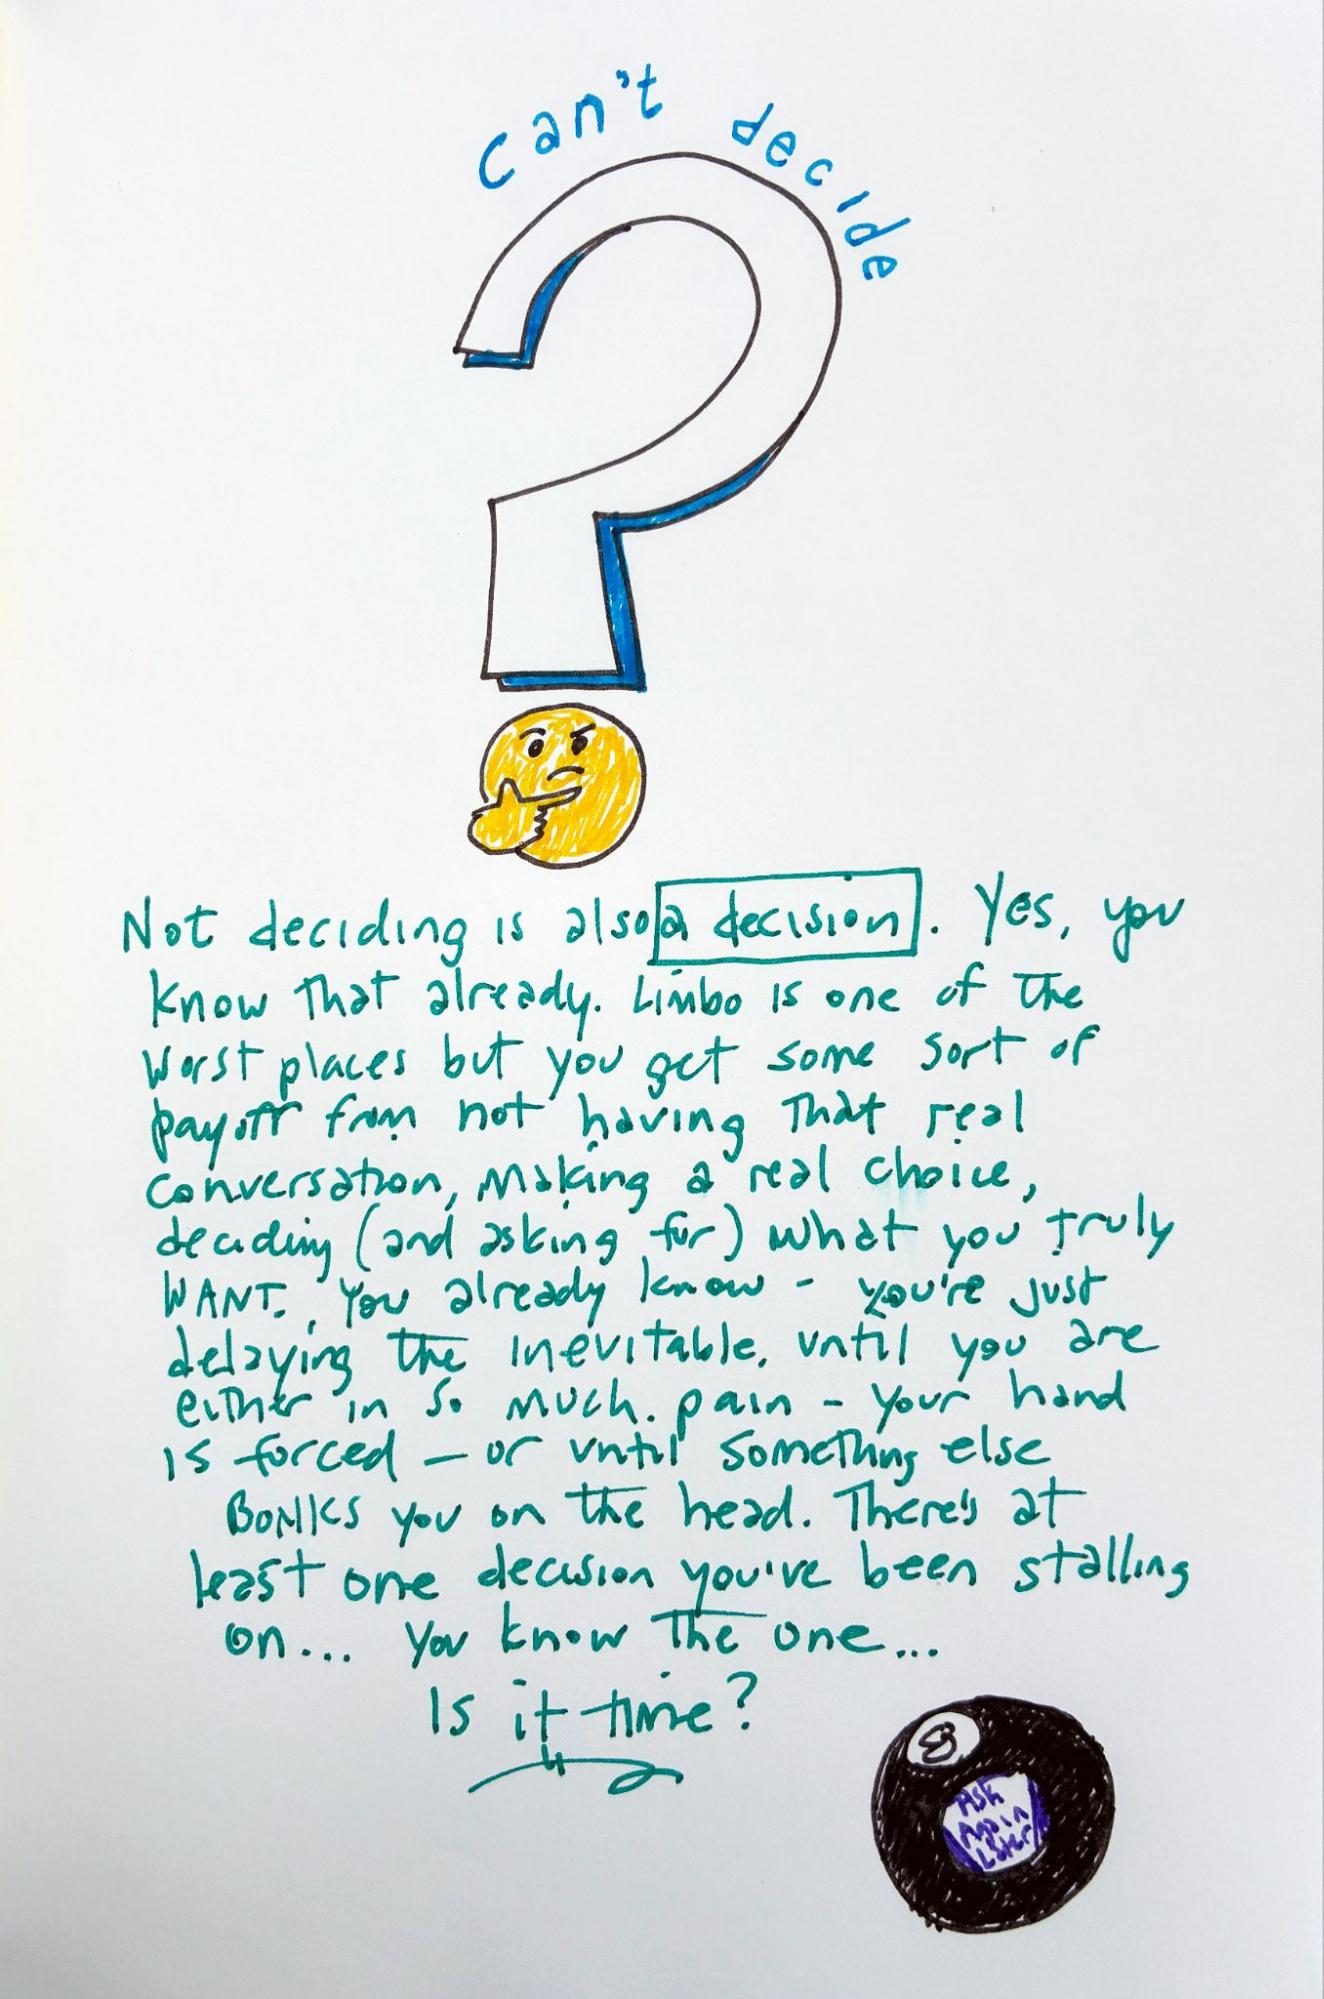 Can't decide
Not deciding is also a decision. Yes, you
know that already. Limbo is one of the
worst places but you get some sort of
payoff from not having that real
conversation, making a real choice,
deciding (and asking for) what you truly
WANT. You already know - you're just
delaying the inevitable, until you are
either in so much pain - your hand
is forced - or until something else
BONKS you on the head. There's at
least one decision you've been stalling
on... you know the one...
Is it time?
8
Ask
Again
Later